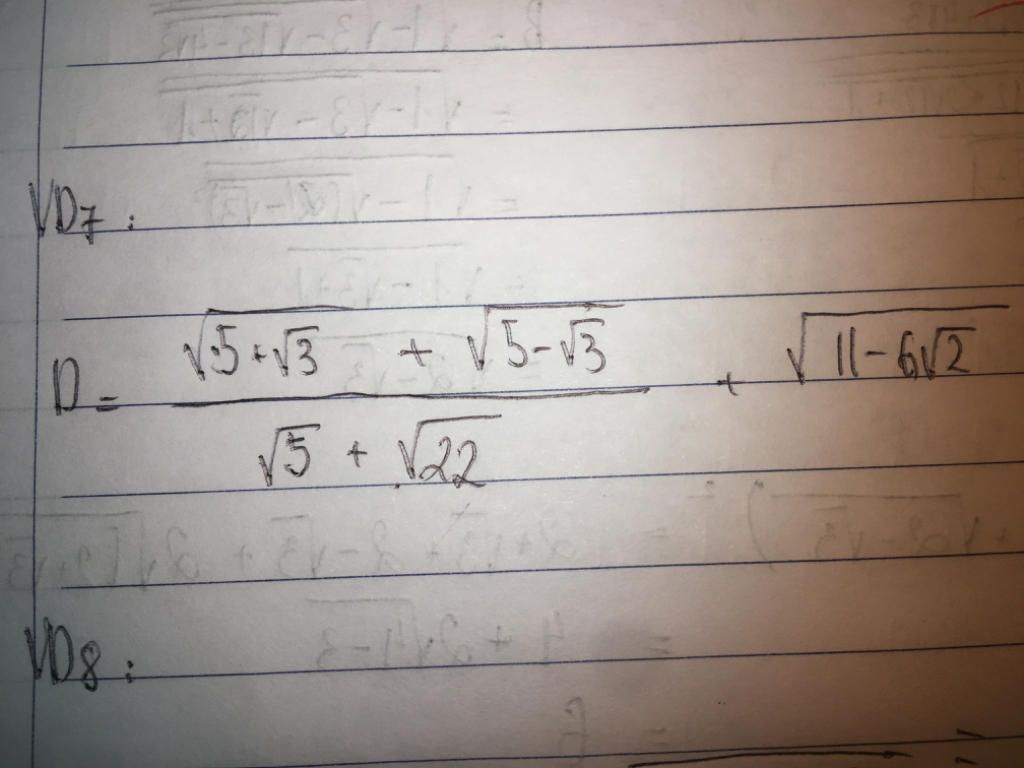 VD7:
D = \frac{\sqrt{5+\sqrt{3}} + \sqrt{5-\sqrt{3}}}{\sqrt{5} + \sqrt{22}} + \sqrt{11-6\sqrt{2}}
VD8: